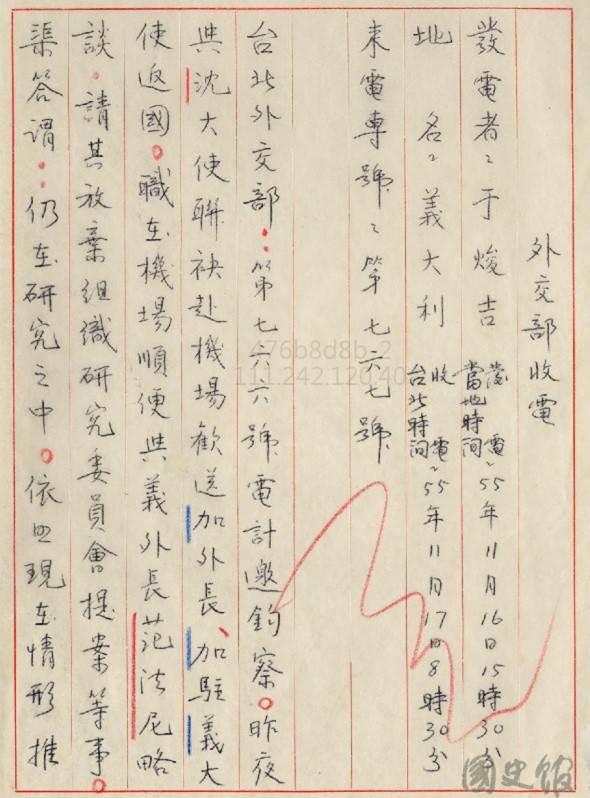 外交部收電
發電者：于焌吉 發電：當地時間 55年11月16日15時30分
地名：義大利 收電：台北時間 55年11月17日8時30分
來電專號：第七六七號
台北外交部：第七六六號電計邀鈞察。昨夜
與沈大使聯袂赴機場歡送加外長、加駐義大
使返國。職在機場順便與義外長范法尼略
談。請其放棄組織研究委員會提案等事。
渠答謂：仍在研究之中。依照現在情形推
476b8d8b-2
111.242.120.40
國史館